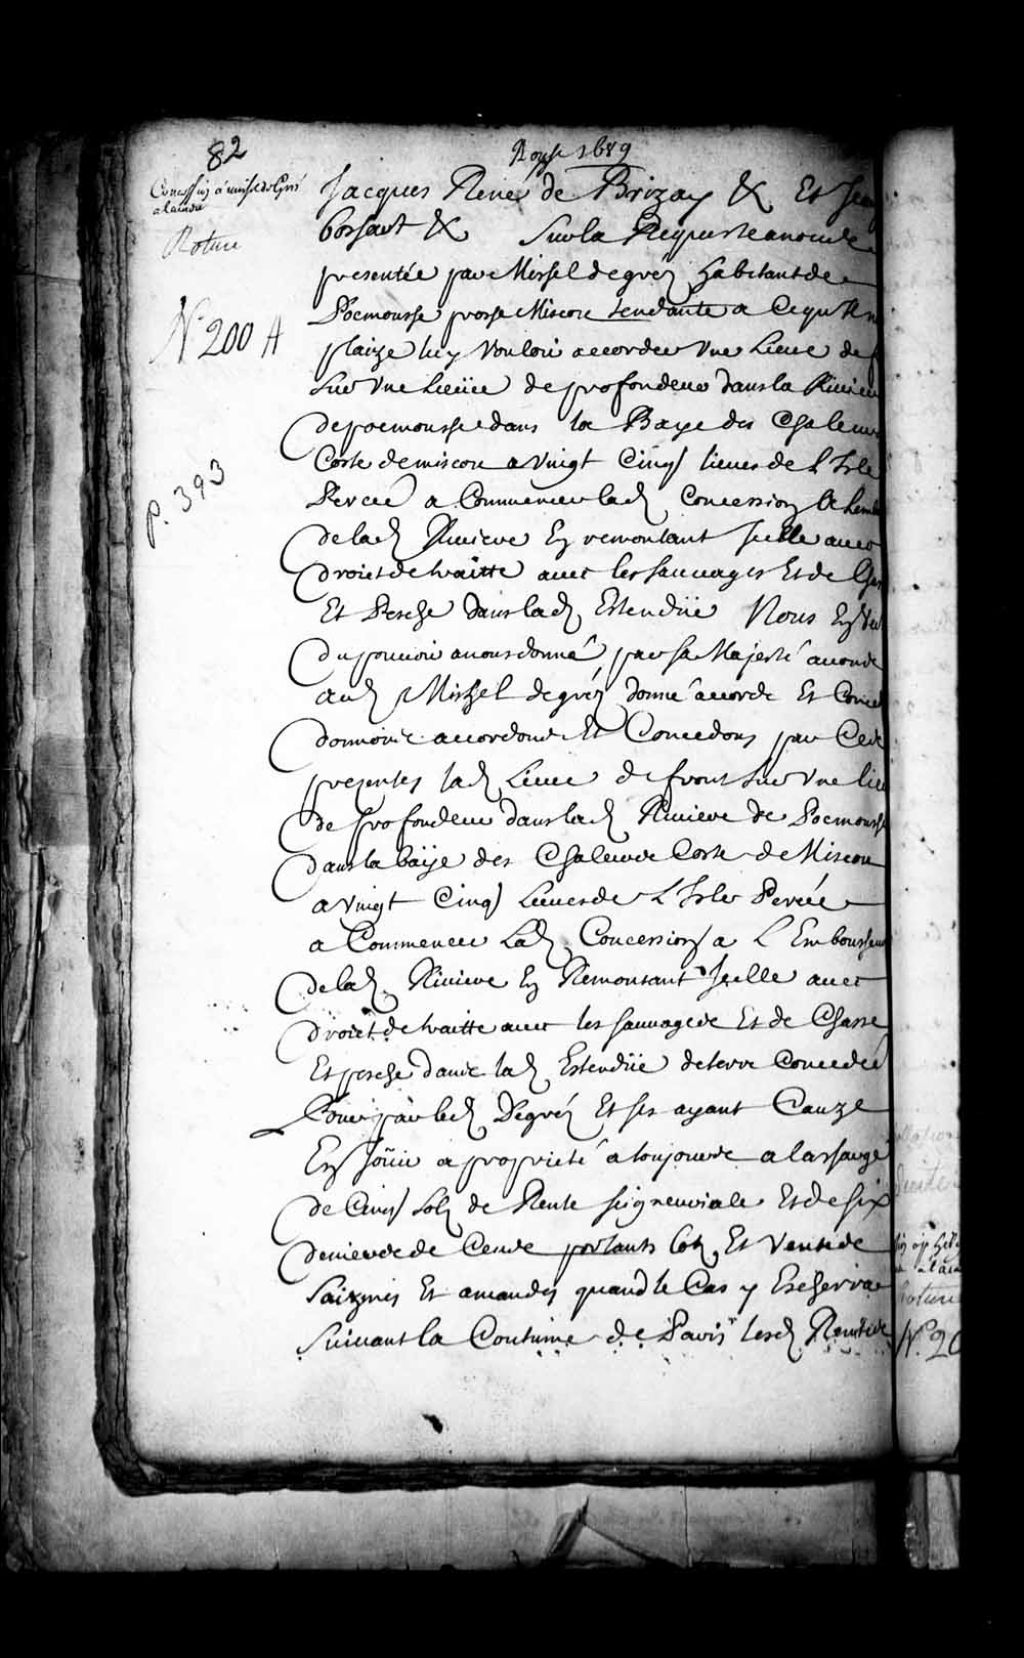 82
Aoust 1689
Concession à Michel de Gres
a lacadie
Roture
N.° 200 A
p. 393
Jacques René de Brizay &c Et Jean
bochart &c Sur la Requeste a nous
presentée par Michel degréz habitant de
Pocmouche proche Miscou tendante a Ce qu'Il n
plaize luy Vouloir accorder Vne Lieue de f
Sur Vne Lieüe de profondeur dans la Riviere
de pocmouche dans la Baye des Chaleurs
Coste de miscou a Vingt Cinq lieues de L'Isle
Percée a Commencer lad. Concession a L'emb
de lad. Riviere En remontant Icelle avec
droict de traitte avec les sauvages Et de Chas
Et Pesche dans lad. Estendüe Nous En Ver
du pouvoir a nous donné par sa Majesté avons
aud. Michel degréz donné accordé Et Conce
donnons accordons Et Concedons par Ces
presentes lad. Lieue de front sur Vne lieu
de profondeur dans lad. Riviere de Pocmouche
dans la baÿe des Chaleurs Coste de Miscou
a Vingt Cinq Lieues de L'Isle Percée
a Commencer Lad. Concession a L'Embouscheur
de lad. Riviere En Remontant Icelle avec
droict de traitte avec les sauvages Et de Chasse
Et pesche dans lad. Estendüe de terre Concedée
Pour par led. Degréz Et ses ayant Cauze
En Joüir a proprieté a toujours a la charge
de Cinq Solz de Rente seigneuriale Et de six
deniers de Cens portants lotz Et Ventes
Saizines Et amandes quand le Cas y Escherra
Suivant la Coutume de Paris lesd. Rentes
Roture
N.° 20